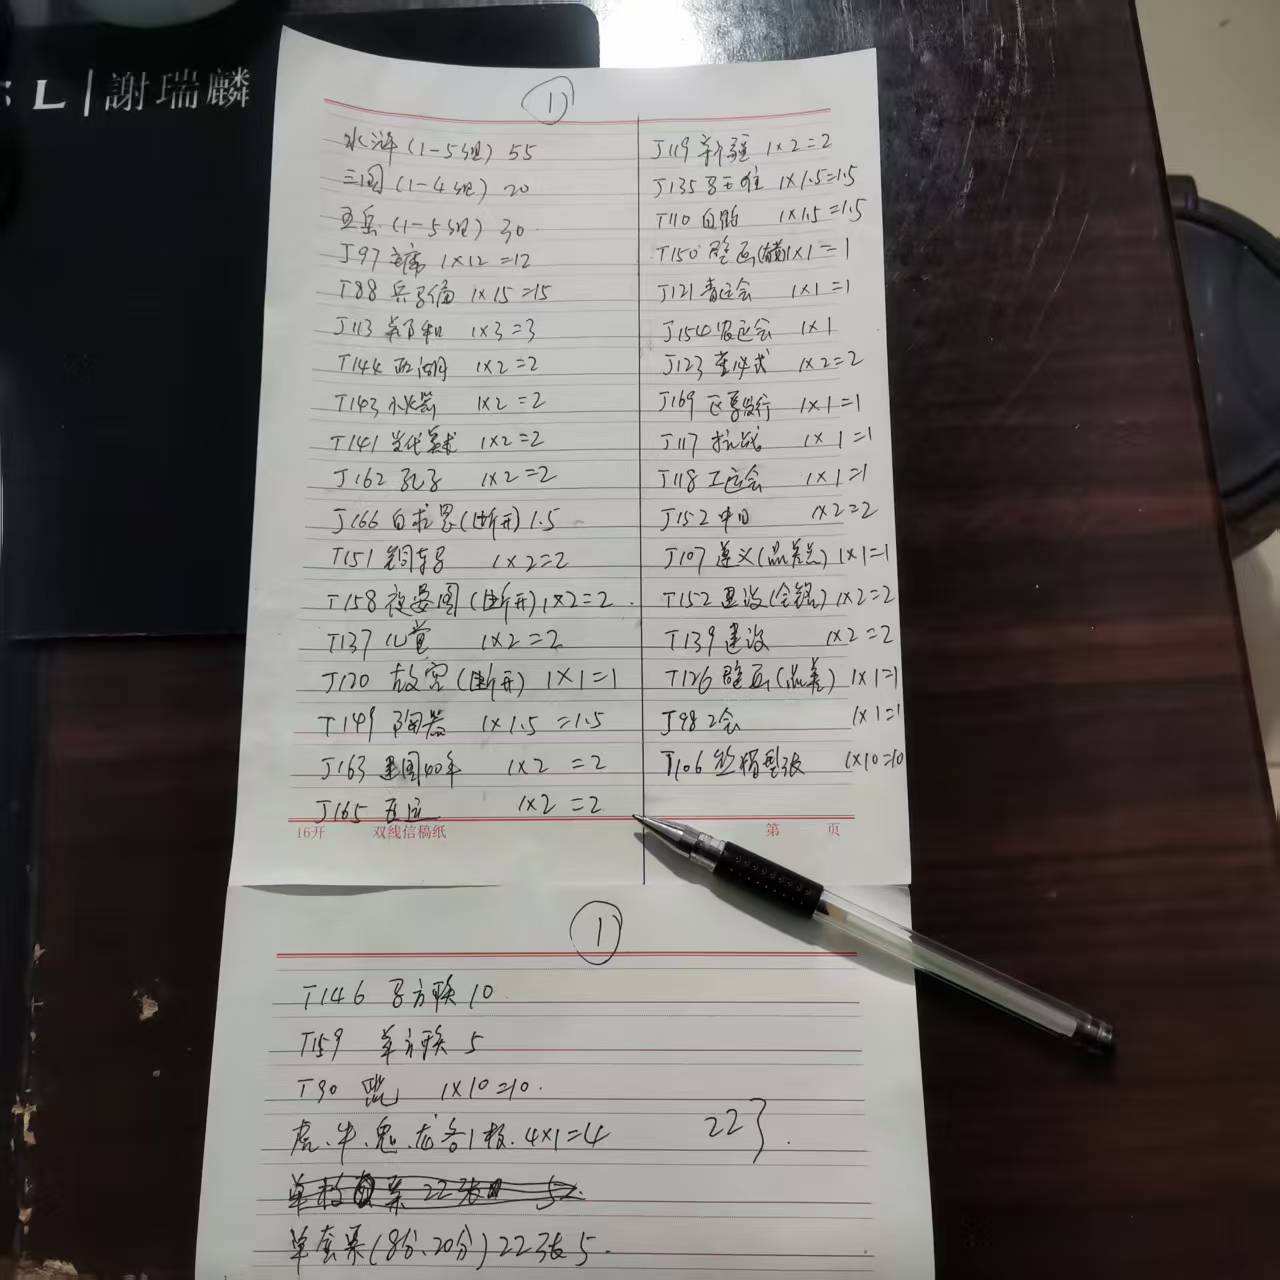 SL|謝瑞麟
①
水浒(1-5组) 55
三国(1-4组) 20
五岳(1-5组) 30
J97 主席 1×12=12
T88 兵马俑 1×15=15
J113 郑和 1×3=3
T144 西湖 1×2=2
T143 小火箭 1×2=2
T141 当代美术 1×2=2
J162 孔子 1×2=2
J166 白求恩(断开) 1.5
T151 铜车马 1×2=2
T158 夜宴图(断开) 1×2=2
T137 儿童 1×2=2
J120 故宫(断开) 1×1=1
T149 陶器 1×1.5=1.5
J163 建国40年 1×2=2
J165 亚运 1×2=2
16开 双线信稿纸
J119 新疆 1×2=2
J135 马王堆 1×1.5=1.5
T110 白鹤 1×1.5=1.5
T150 壁画 1×1=1
J121 青运会 1×1=1
J154 农运会 1×1
J123 董必武 1×2=2
J169 1×1=1
J117 抗战 1×1=1
J118 工运会 1×1=1
J152 中日 1×2=2
J107 遵义(品差点) 1×1=1
T152 建设(全铭) 1×2=2
T139 建设 1×2=2
T126 壁画(品差) 1×1=1
J98 2会 1×1=1
T106 熊猫型张 1×10=10
第 页
①
T146 马方联 10
T159 羊方联 5
T90 1×10=10.
虎、牛、兔、龙各1枚. 4×1=4
223.
单套票(8分、20分)22张 5.